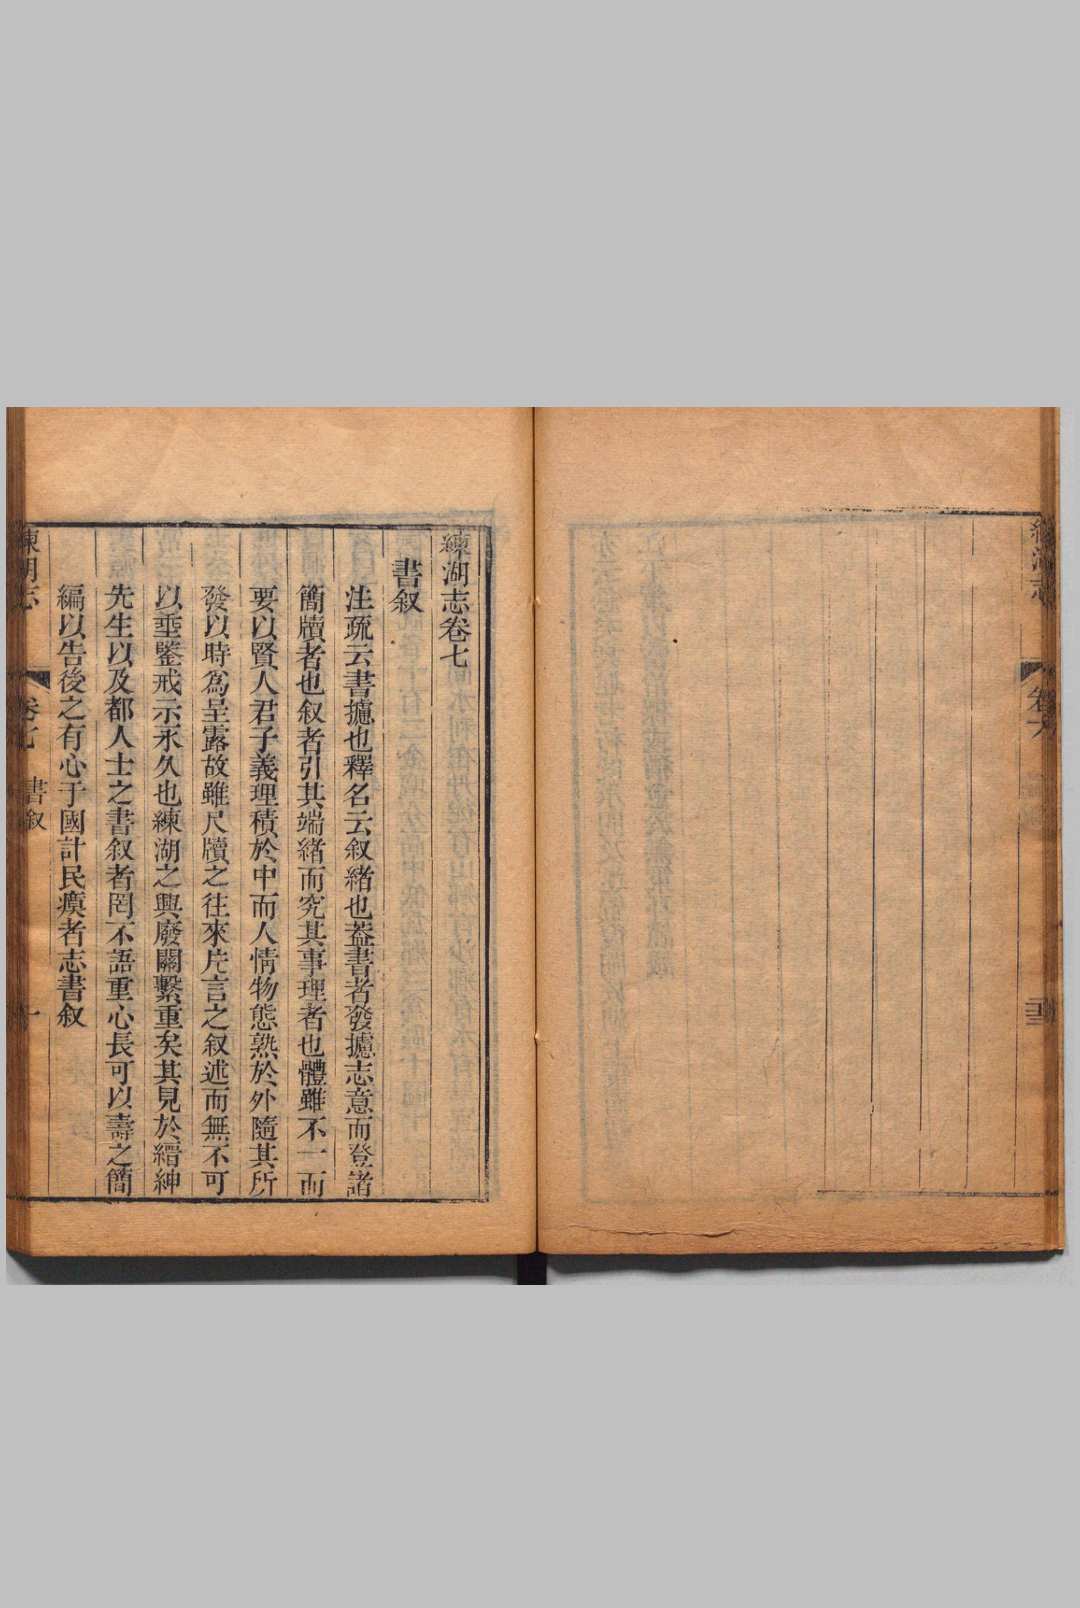 練湖志
卷六
練湖志卷七
書叙
注疏云書攄也釋名云叙緒也葢書者發攄志意而登諸
簡牘者也叙者引其端緒而究其事理者也體雖不一而
要以賢人君子義理積於中而人情物態熟於外隨其所
發以時為呈露故雖尺牘之往來片言之叙述而無不可
以垂鑒戒示永久也練湖之興廢關繫重矣其見於縉紳
先生以及都人士之書叙者罔不語重心長可以壽之簡
編以告後之有心于國計民瘼者志書叙
練湖志
卷七
書叙
一